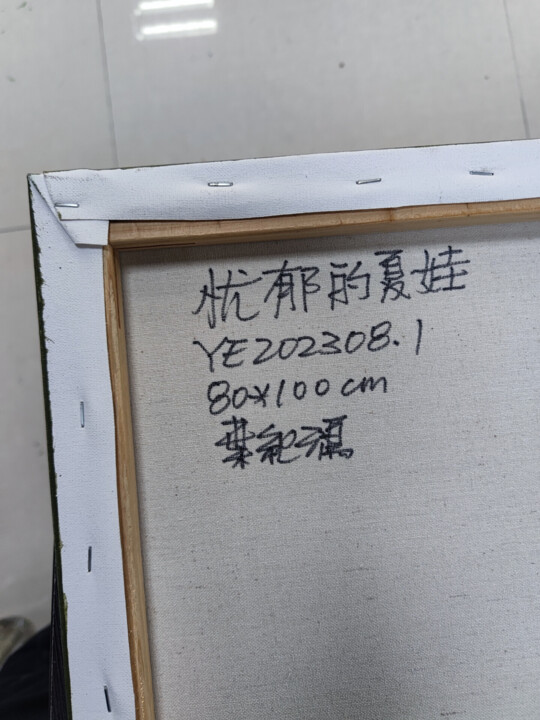 忧郁的夏娃
YE202308.1
80×100cm
葉紀